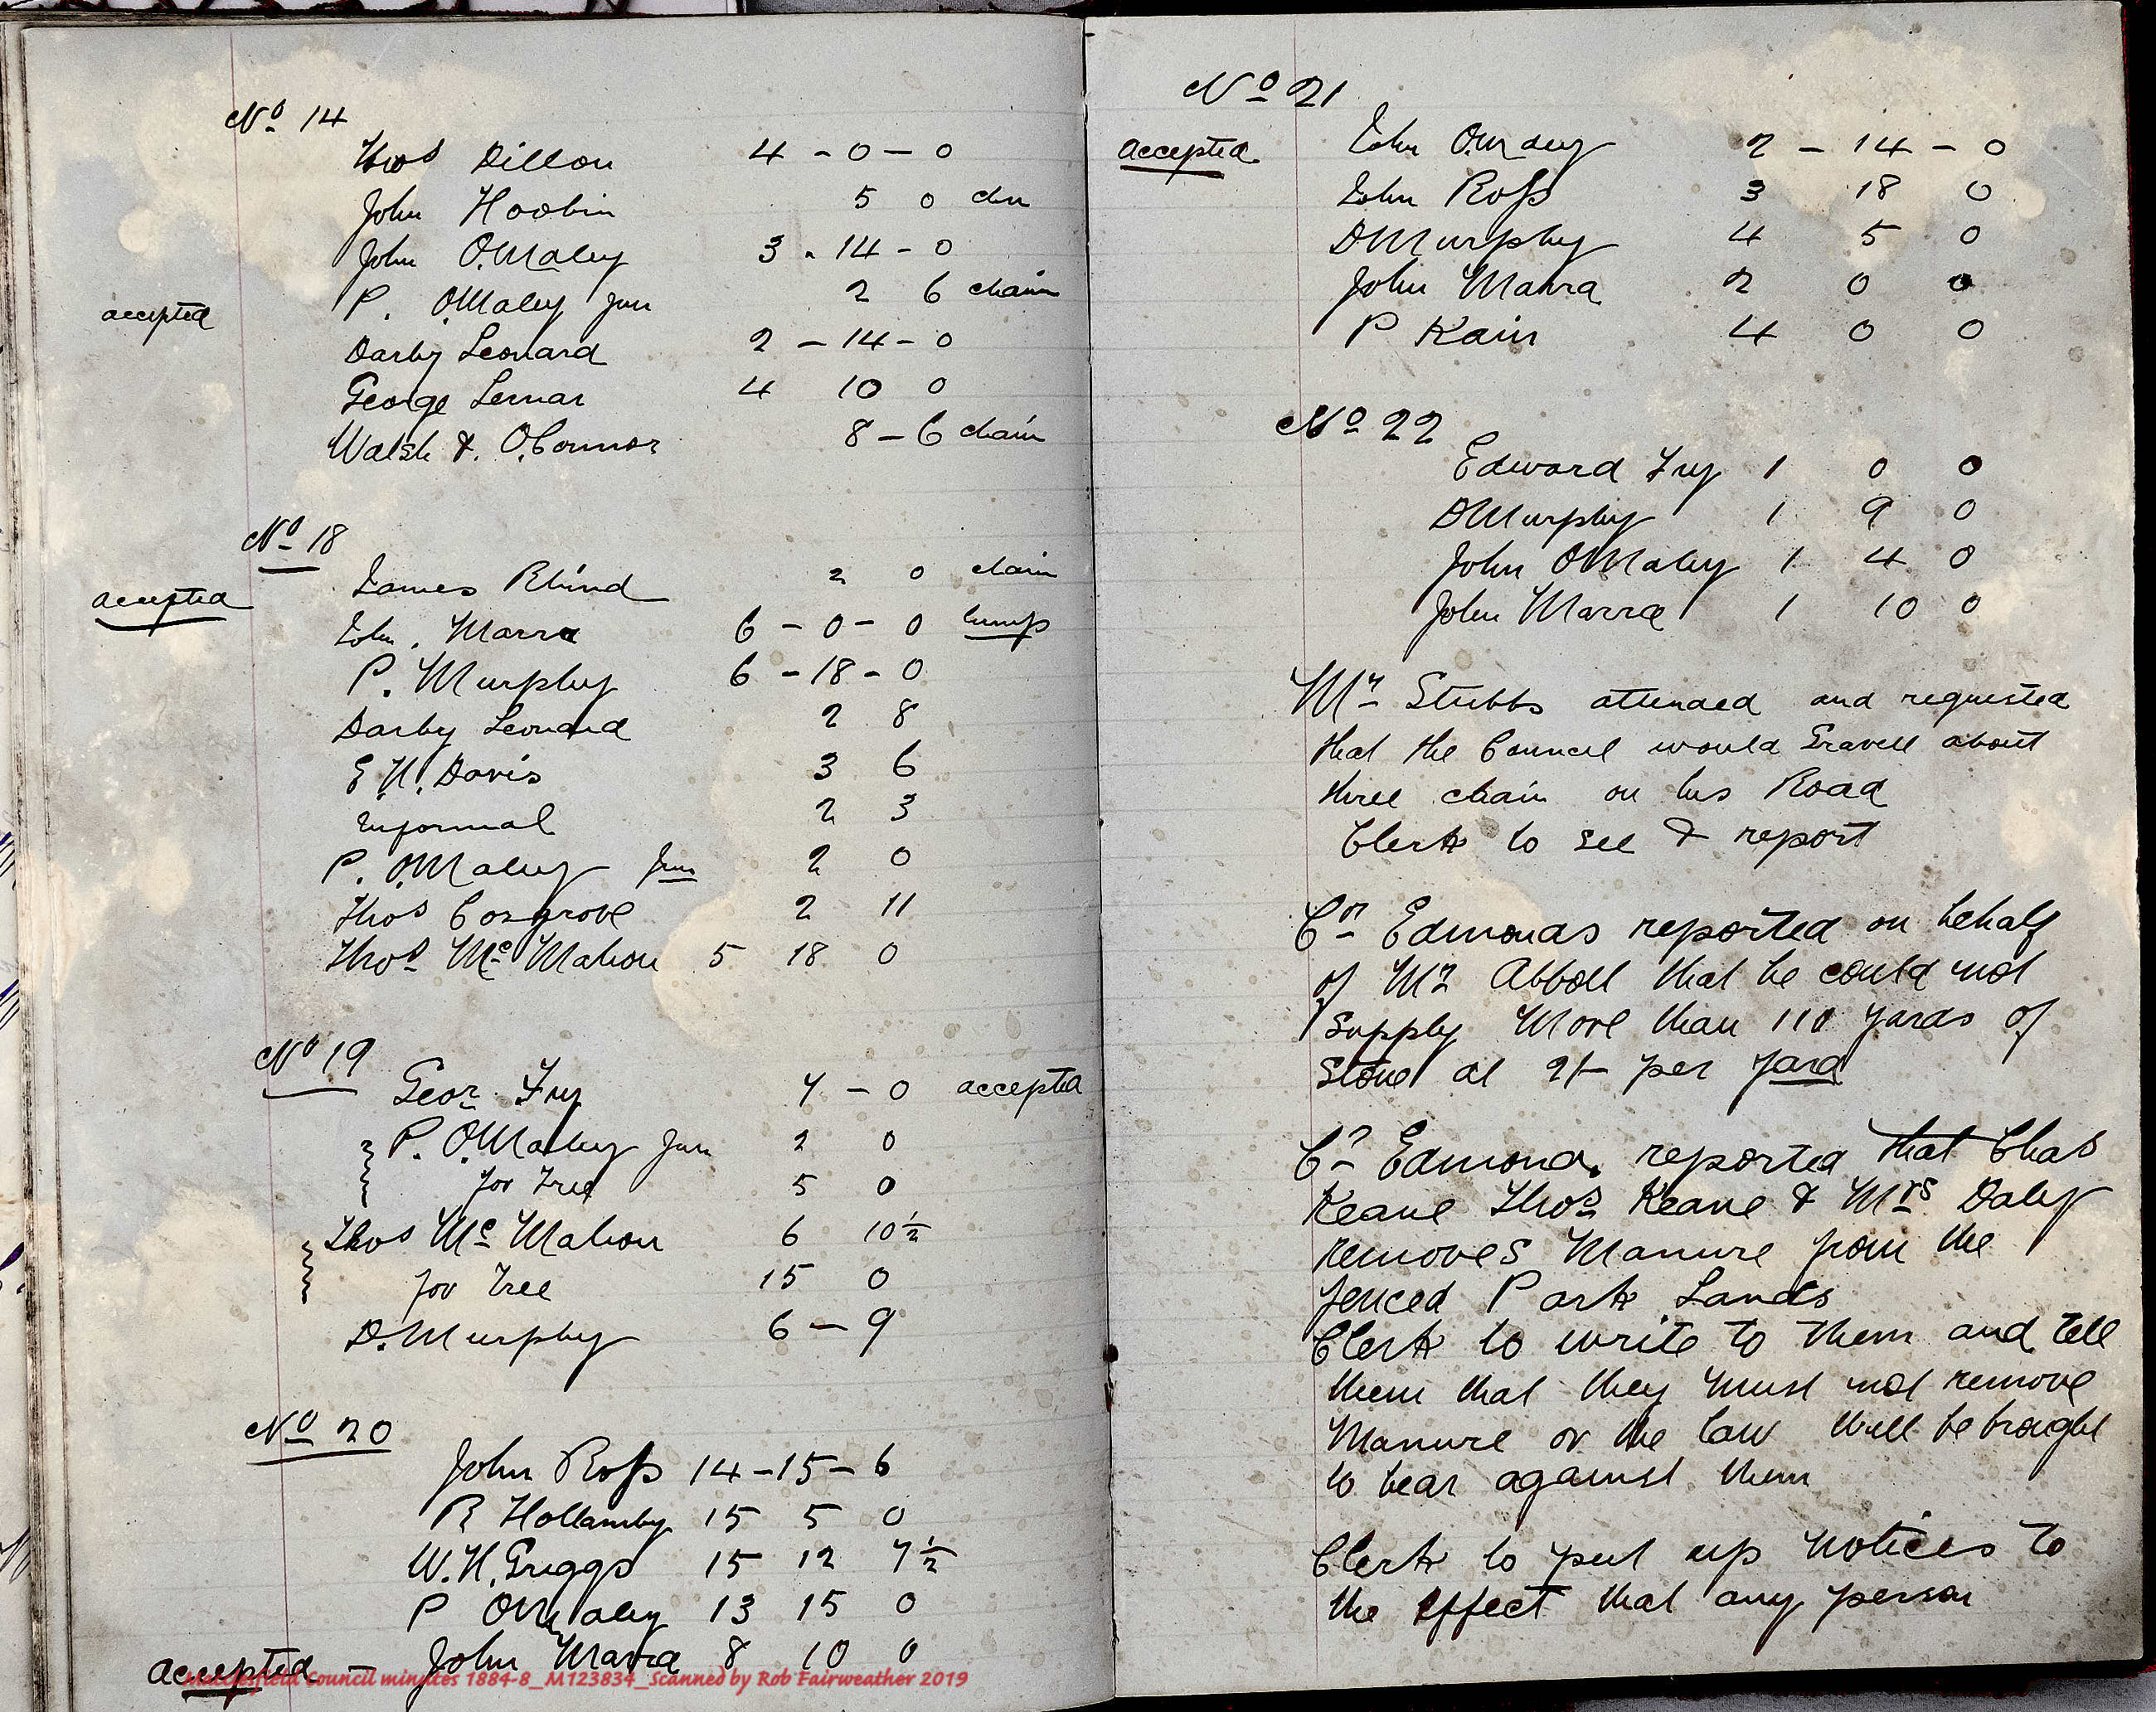 No 14
Thos Dillon 4 - 0 - 0
John Hoobin 5 0 chn
John O.Maley 3 - 14 - 0
accepted P. O.Maley Jun 2 6 chain
Darby Leonard 2 - 14 - 0
George Lernar 4 10 0
Walsh & O.Connor 8 - 6 chain
No 18
accepted James Rhind 2 0 chain
John. Marra 6 - 0 - 0 lump
P. Murphy 6 - 18 - 0
Darby Leonard 2 8
E.H. Davis 3 6
Informal 2 3
P. O.Maley Jun 2 0
Thos Cosgrove 2 11
Thos Mc Mahon 5 18 0
No 19
Geor Fry 7 - 0 accepted
P. O.Maley Jun 2 0
for Tree 5 0
Thos Mc Mahon 6 10½
for Tree 15 0
D. Murphy 6 - 9
No 20
John Ross 14 - 15 - 6
R Hollamby 15 5 0
W.H. Griggs 15 12 7½
P OMaley 13 15 0
accepted - John Marra 8 10 0
Macclesfield Council minutes 1884-8_M123834_Scanned by Rob Fairweather 2019
No 21
accepted John 2 - 14 - 0
John Ross 3 18 0
D Murphy 4 5 0
John Marra 2 0 0
P Kain 4 0 0
No 22
Edward Fry 1 0 0
D Murphy 1 9 0
John OMaley 1 4 0
John Marra 1 10 0
Mr Stubbs attended and requested
that the Council would Gravell about
three chain on his Road
Clerk to see & report
Cr Edmonds reported on behalf
of Mr Abbott that he could not
supply More than 110 yards of
Stone at 2/- per yard
Cr Edmonds reported that Chas
Keane Thos Keane & Mrs Daley
removes Manure from the
fenced Park Lands
Clerk to write to them and tell
them that they must not remove
Manure or the law will be brought
to bear against them
Clerk to put up notices to
the effect that any person